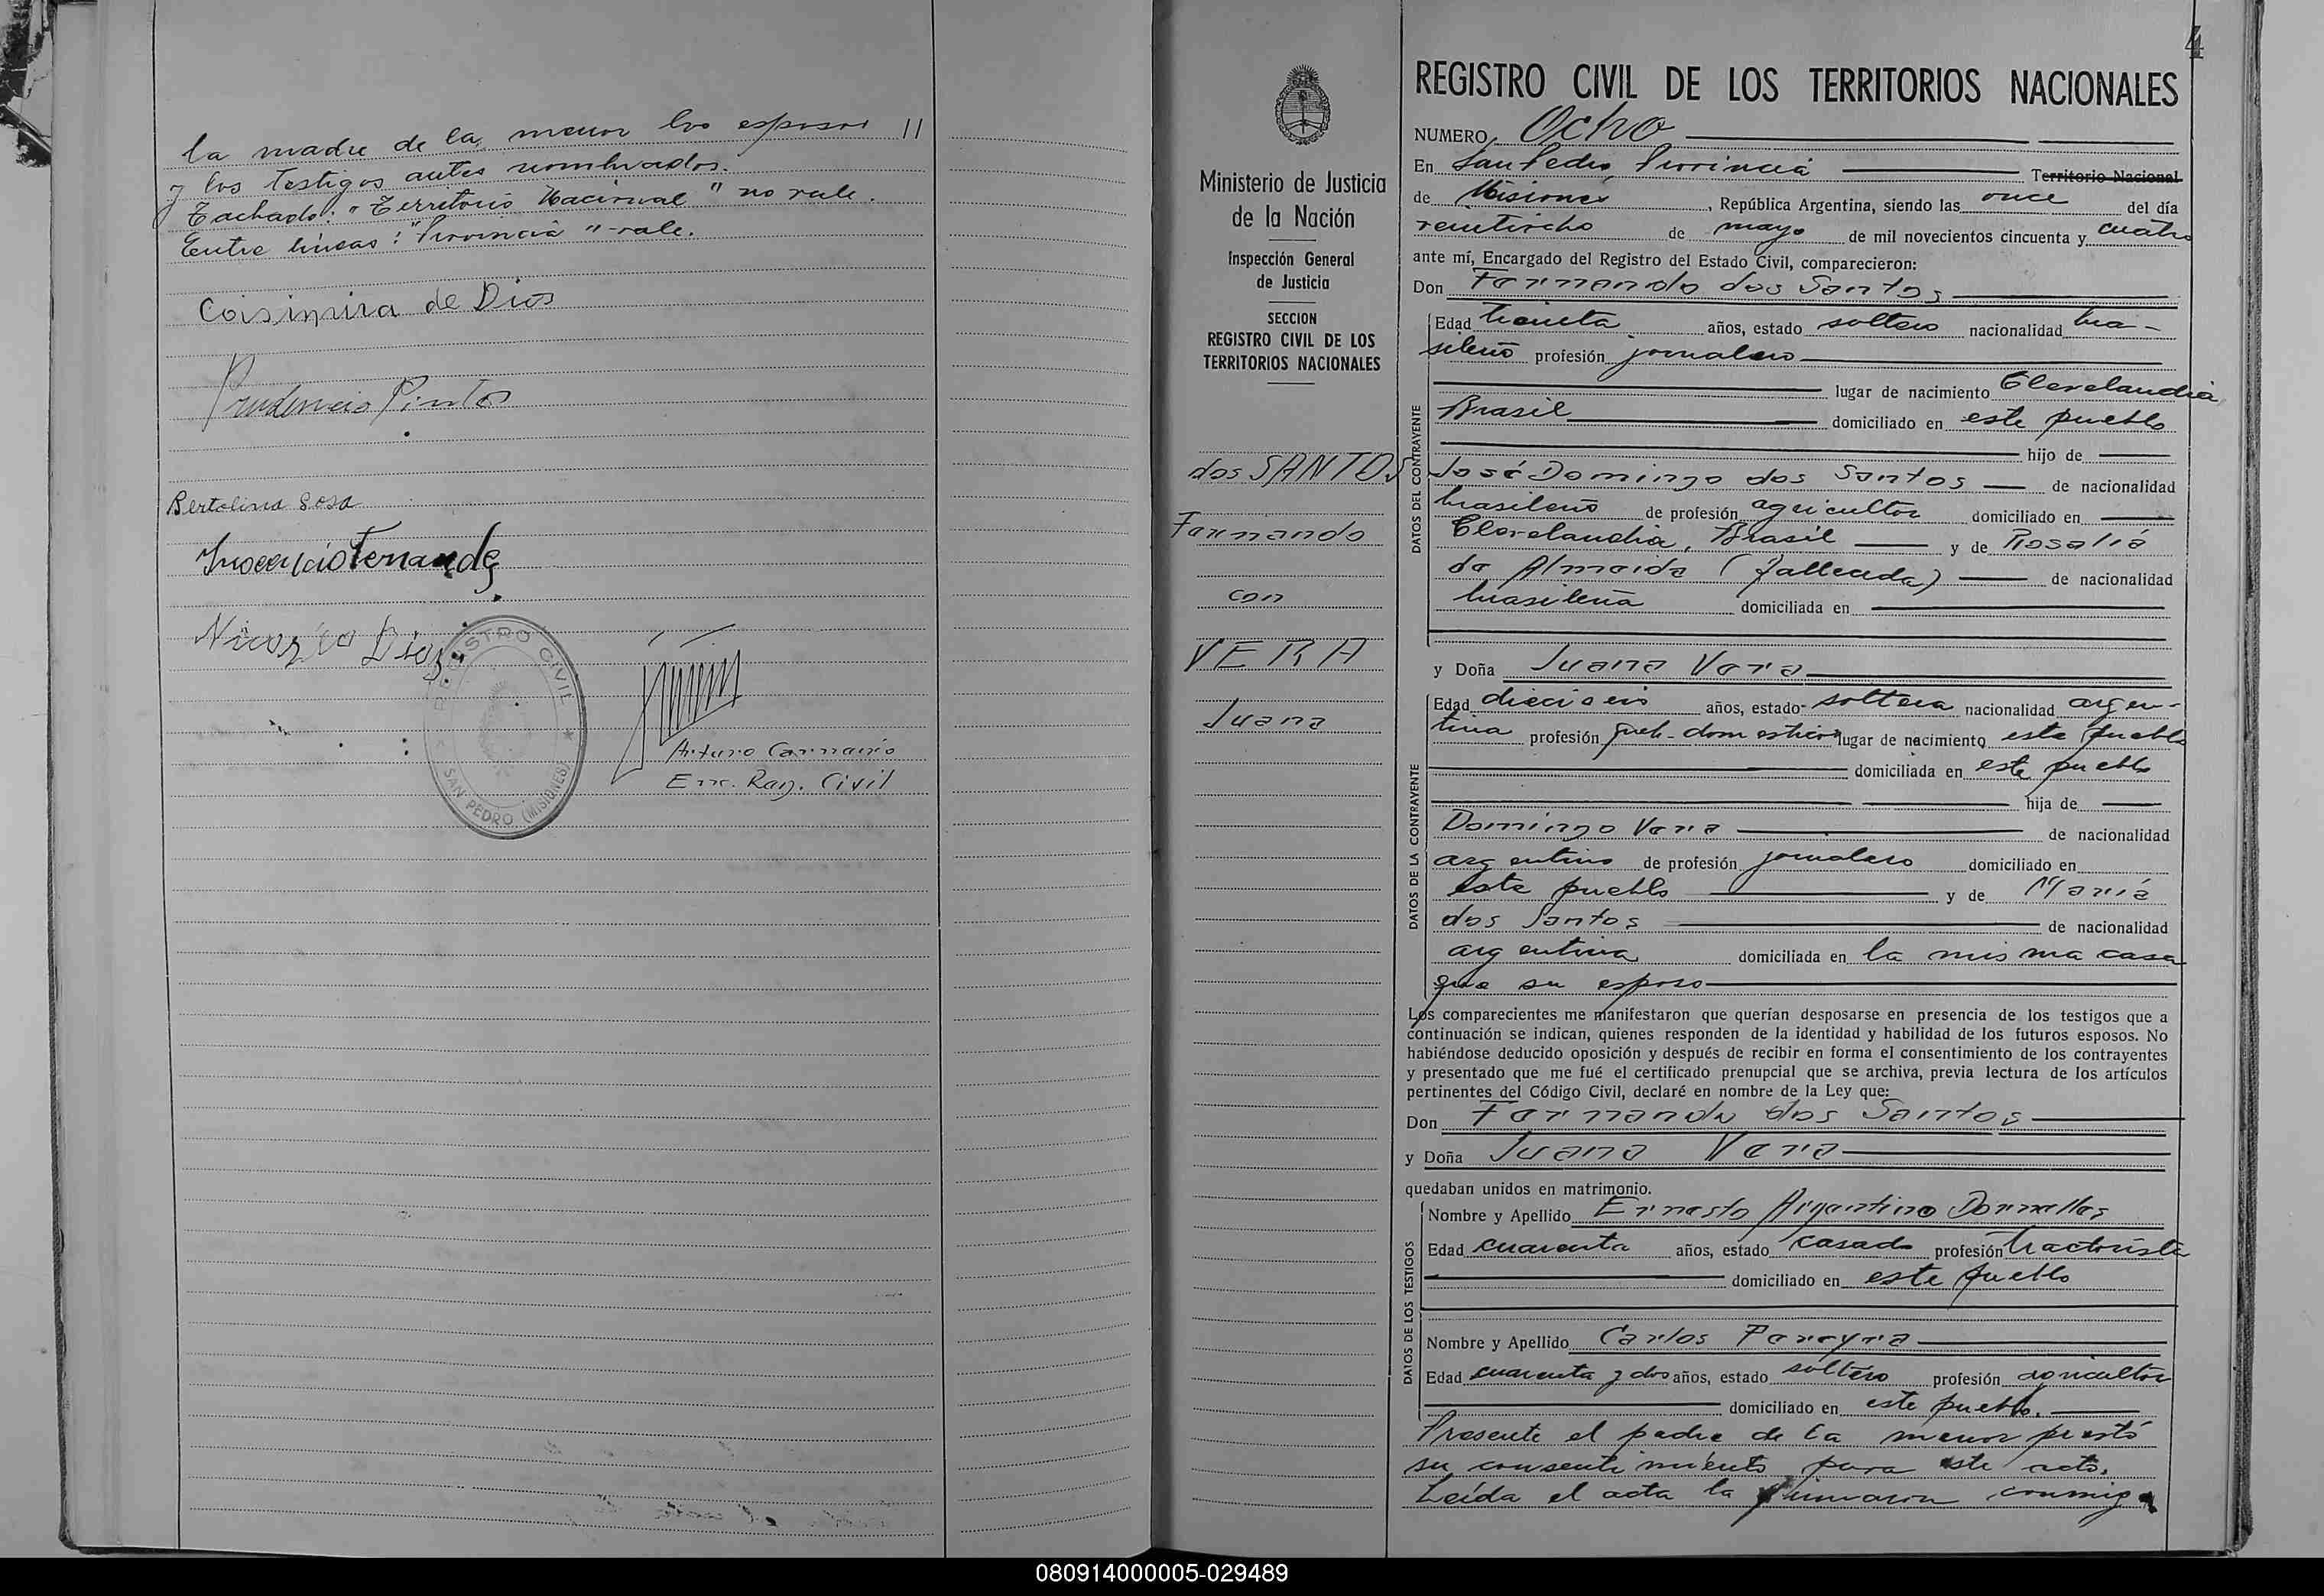 la madre de la menor los esposos //
y los testigos antes nombrados.
Tachado: "Territorio Nacional" no vale.
Entre líneas: "Provincia" vale.
Casimira de Dios
Prudencio Pintos
Bertolina Sosa
Inocencio Fernandez
REGISTRO CIVIL
SAN PEDRO (MISIONES)
Enc. Reg. Civil
4
Ministerio de Justicia
de la Nación
Inspección General
de Justicia
SECCION
REGISTRO CIVIL DE LOS
TERRITORIOS NACIONALES
dos SANTOS
Fernando
con
VERA
Juana
REGISTRO CIVIL DE LOS TERRITORIOS NACIONALES
NUMERO Ocho
En San Pedro, Provincia Territorio Nacional
de Misiones, República Argentina, siendo las once del día
veintiocho de mayo de mil novecientos cincuenta y cuatro
ante mí, Encargado del Registro del Estado Civil, comparecieron:
Don Fernando dos Santos
DATOS DEL CONTRAYENTE
Edad treinta años, estado soltero nacionalidad bra-
sileño profesión jornalero
lugar de nacimiento Clevelandia
Brasil domiciliado en este pueblo
hijo de
José Domingo dos Santos de nacionalidad
brasileño de profesión agricultor domiciliado en
Clevelandia, Brasil y de Rosalía
de Almeida (fallecida) de nacionalidad
brasileña domiciliada en
y Doña Juana Vera
DATOS DE LA CONTRAYENTE
Edad dieciseis años, estado soltera nacionalidad argen-
tina profesión queh-domesticos lugar de nacimiento este pueblo
domiciliada en este pueblo
hija de
Domingo Vera de nacionalidad
argentino de profesión jornalero domiciliado en
este pueblo y de María
dos Santos de nacionalidad
argentina domiciliada en la misma casa
que su esposo
Los comparecientes me manifestaron que querían desposarse en presencia de los testigos que a
continuación se indican, quienes responden de la identidad y habilidad de los futuros esposos. No
habiéndose deducido oposición y después de recibir en forma el consentimiento de los contrayentes
y presentado que me fué el certificado prenupcial que se archiva, previa lectura de los artículos
pertinentes del Código Civil, declaré en nombre de la Ley que:
Don Fernando dos Santos
y Doña Juana Vera
quedaban unidos en matrimonio.
DATOS DE LOS TESTIGOS
Nombre y Apellido Ernesto Argentino Dornelles
Edad cuarenta años, estado casado profesión tractorista
domiciliado en este pueblo
Nombre y Apellido Carlos Pereyra
Edad cuarenta y dos años, estado soltero profesión agricultor
domiciliado en este pueblo.
Presente el padre de la menor prestó
su consentimiento para este acto.
Leída el acta la firmaron conmigo
080914000005-029489